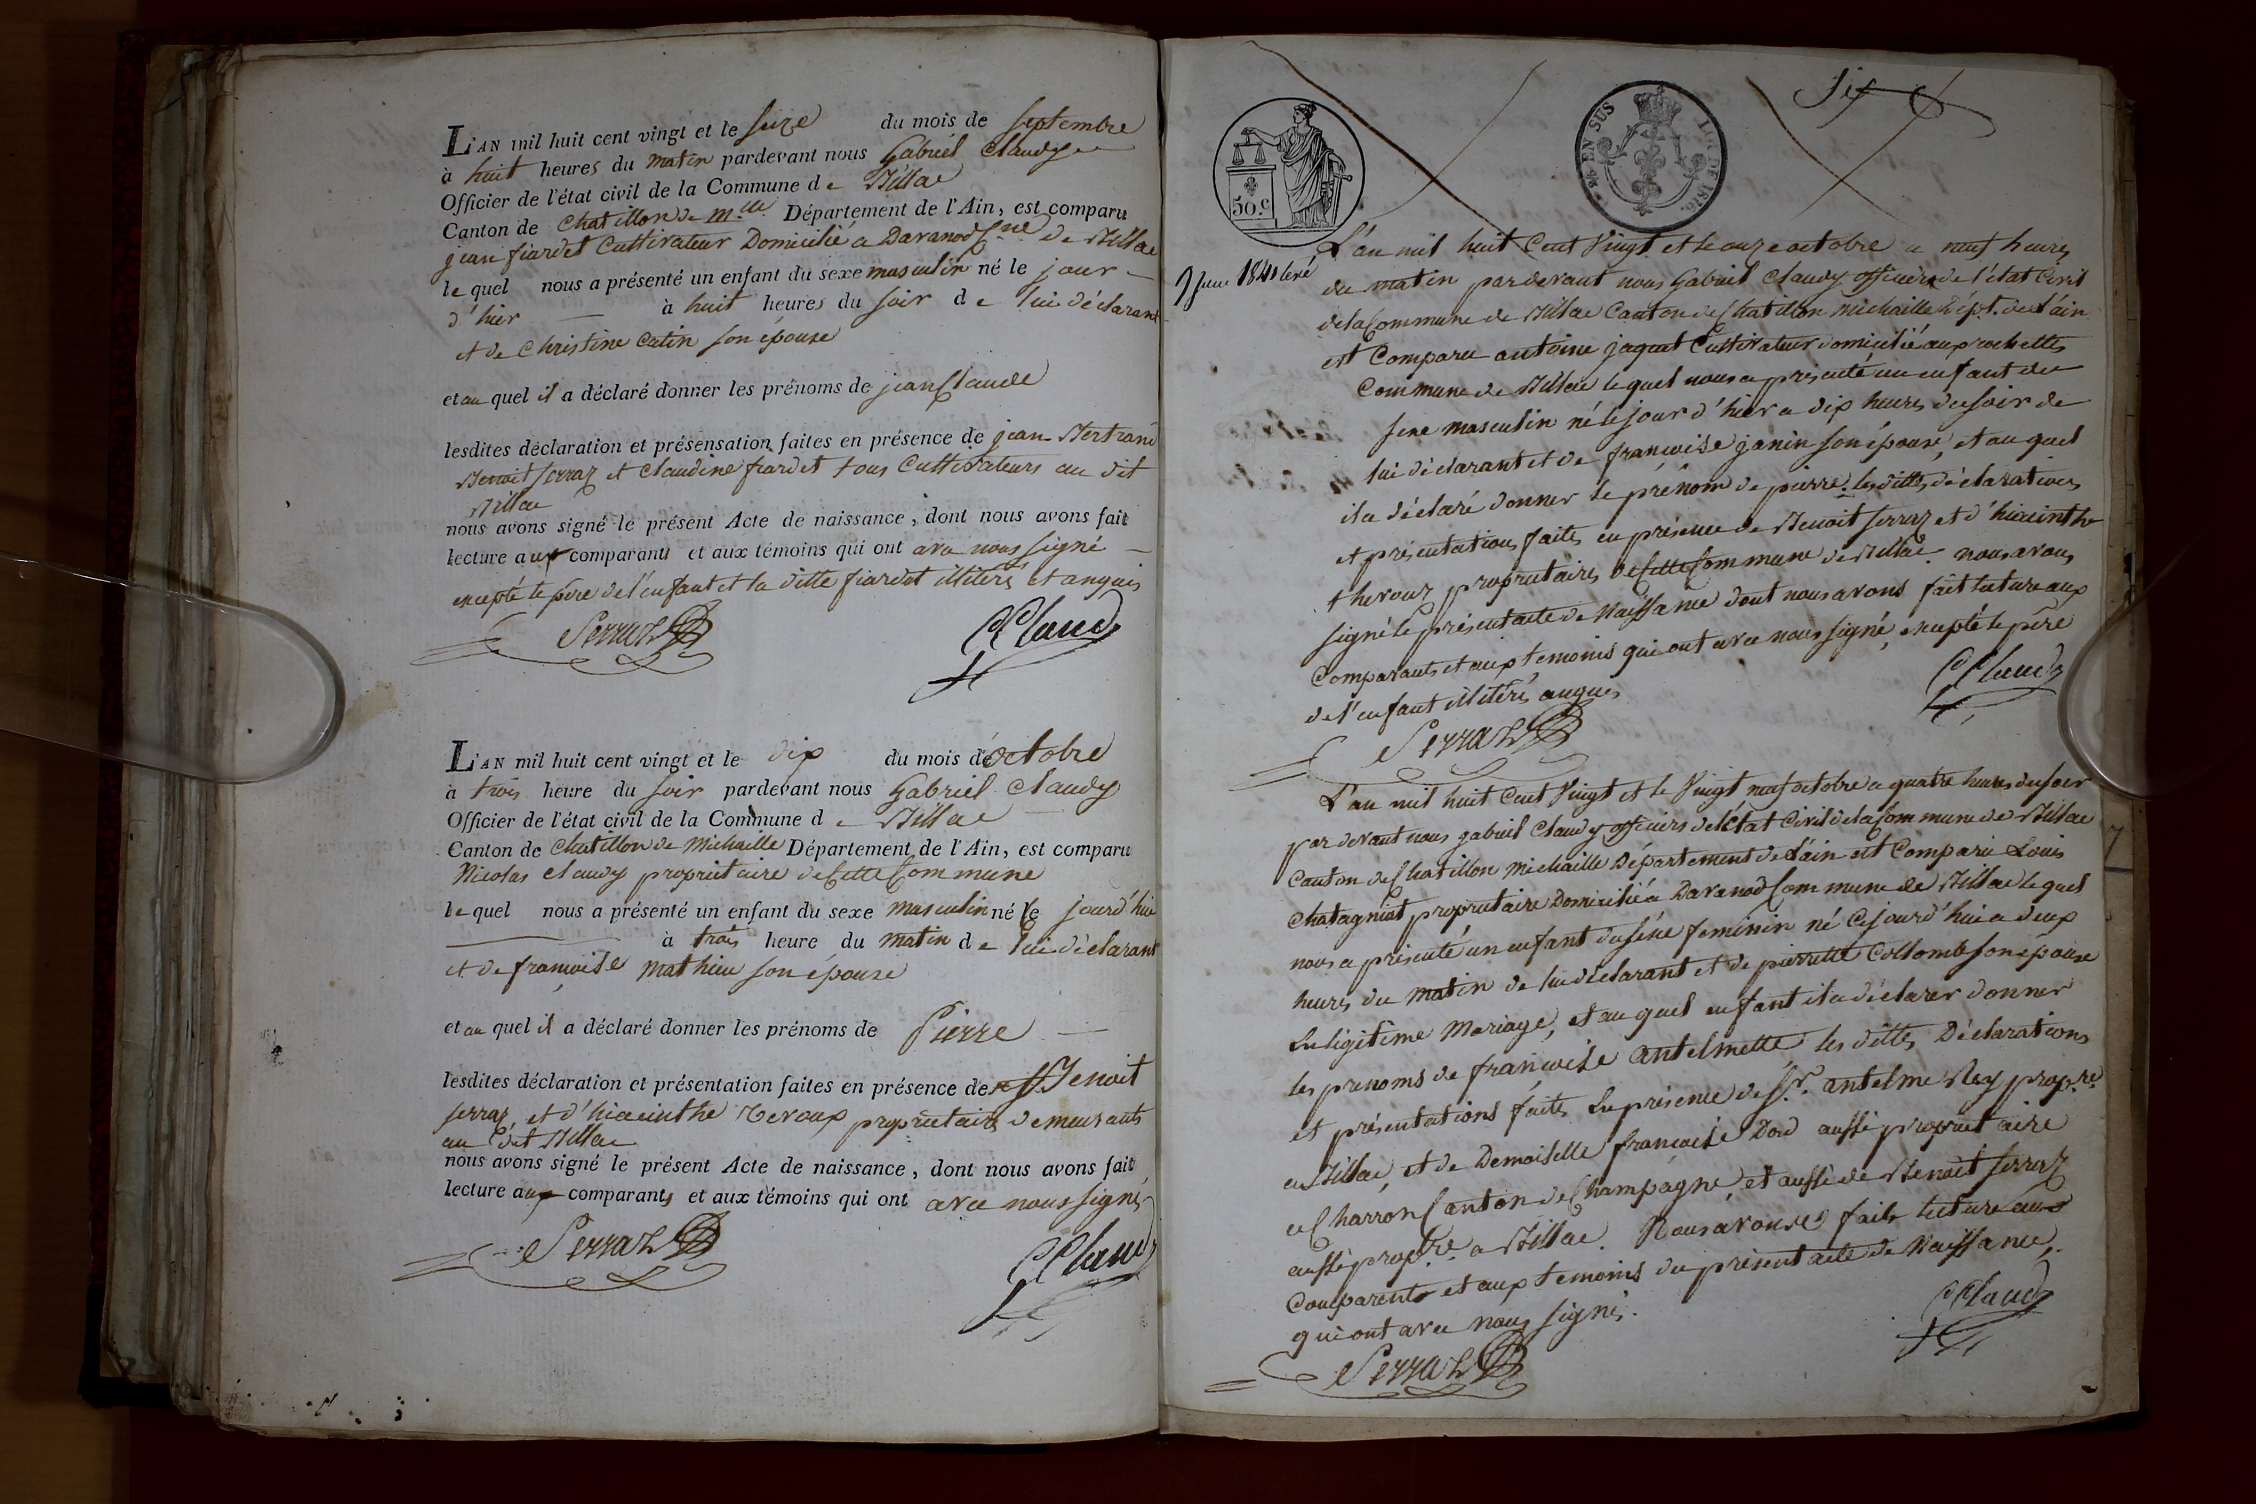 L'AN mil huit cent vingt et le seize du mois de septembre
à huit heures du matin pardevant nous Gabriel Claudy
Officier de l'état civil de la Commune de Billiac
Canton de Chatillon de M.lle Département de l'Ain, est comparu
jean fiardet Cultivateur Domicilié a Davanod C.ne de Billiac
le quel nous a présenté un enfant du sexe masculin né le jour
d'hier à huit heures du soir de lui déclarant
et de Christine Catin son épouse
et au quel il a déclaré donner les prénoms de jean Claude
lesdites déclaration et présensation faites en présence de jean Bertrand
Benoit ferraz et Claudine fiardet tous Cultivateurs au dit
Billiac
nous avons signé le présent Acte de naissance, dont nous avons fait
lecture aux comparants et aux témoins qui ont avec nous signé
excepté le père de l'enfant et la ditte fiardet illiteré et anquis
Serraz Claudy
L'AN mil huit cent vingt et le dix du mois d'octobre
à trois heure du soir pardevant nous Gabriel Claudy
Officier de l'état civil de la Commune de Billiac
Canton de Chatillon de Michaille Département de l'Ain, est comparu
Nicolas Claudy propriétaire de Cette Commune
le quel nous a présenté un enfant du sexe masculin né le jourd'hui
à trois heure du matin de lui déclarant
et de françoise mathieu son épouse
et au quel il a déclaré donner les prénoms de Pierre
lesdites déclaration et présentation faites en présence de Benoit
ferraz et d'hiacinthe Teroux propriétaires demeurants
au dit Billiac
nous avons signé le présent Acte de naissance, dont nous avons fait
lecture aux comparants et aux témoins qui ont avec nous signé
Serraz Claudy
six
50.c
EN SUS
DE 1816.
9 June 1841 levé
L'an mil huit Cent Vingt et le onze octobre a neuf heures
du matin par devant nous Gabriel Claudy officier de l'état Civil
de la Commune de Billiac Canton de Chatillon Michaille Dépt. de l'ain
est Comparu antoine jaquet Cultivateur domicilié au rochettes
Commune de Billiac lequel nous a présenté un enfant du
sexe masculin né le jour d'hier a dix heures du soir de
lui déclarant et de françoise janin son épouse, et au quel
il a déclaré donner le prénom de pierre. les dittes déclarations
et présentations faites en présence de Benoit ferraz et d'hiacinthe
theroux propriétaires de Cette Commune de Billiac. nous avons
signé le présent acte de Naissance dont nous avons fait lecture aux
Comparants et aux temoins qui ont avec nous signé, excepté le père
de l'enfant illitéré anquis
Serraz Claudy
L'an mil huit Cent Vingt et le Vingt neuf octobre a quatre heures du soir
par devant nous gabriel Claudy officiers de l'état Civil de la Commune de Billiac
Canton de Chatillon Michaille Département de L'ain est Comparu Louis
Chatagniat propriétaire Domicilié a Davanod Commune de Billiac lequel
nous a présenté un enfant du séxe feminin né Ce jourd'hui a deux
heures du matin de lui déclarant et de pierrette Collomb son épouse
En légitime Mariage, et au quel enfant il a déclarer donner
les prenoms de françoise antelmette les dittes Déclarations
et présentations faites En présence de Sr. antelme Rey prop.re
a Billiac, et de Demoiselle françoise Dod aussi propriétaire
a Charron Canton de Champagne, et aussi de Benoit ferraz
aussi prop.re a Billiac. Nous avons fait lecture aux
Comparents et aux temoins du présent acte de Naissance,
qui ont avec nous signé.
Serraz Claudy
7